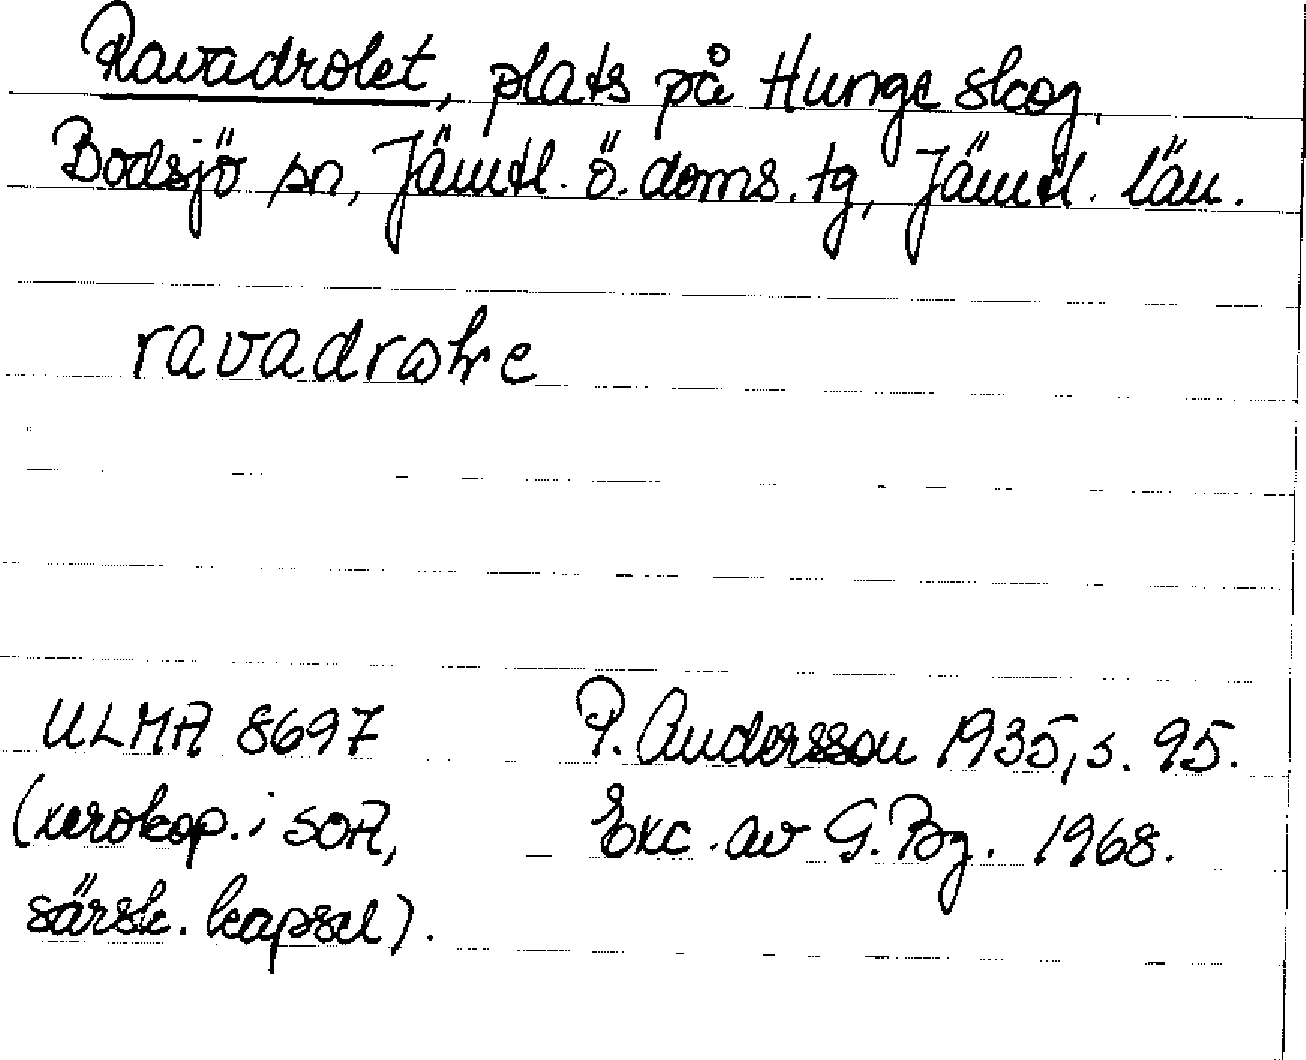 Ravadrolet, plats på Hunge skog,
Bodsjö sn, Jämtl. ö. doms. tg, Jämtl. län.
ULMA 8697
(xerokop. i SOA,
särsk. kapsel).
P. Andersson 1935, s. 95.
Exc. av G. Bg. 1968.